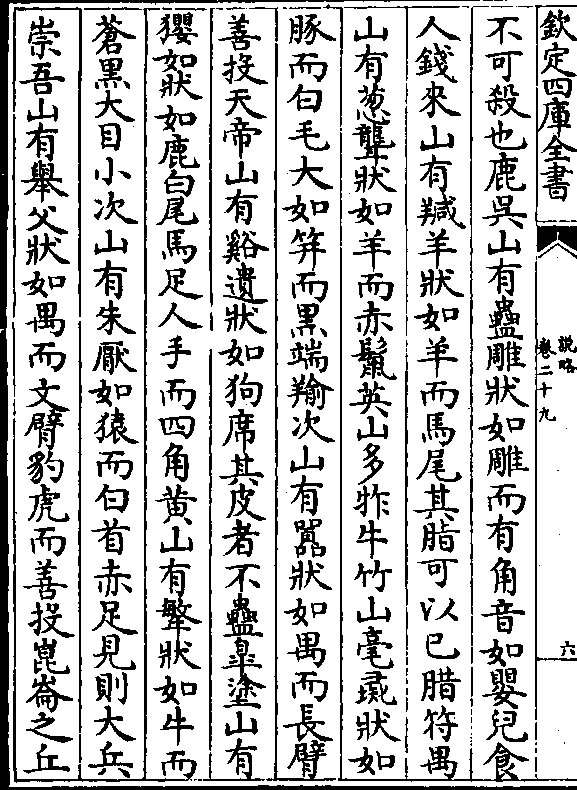 欽定四庫全書
說略
卷二十九
六
不可殺也鹿吳山有蠱雕狀如雕而有角音如嬰兒食
人錢來山有羬羊狀如羊而馬尾其脂可以已腊符禺
山有葱聾狀如羊而赤鬛英山多㸲牛竹山毫彘狀如
豚而白毛大如笄而黒端羭次山有嚻狀如禺而長臂
善投天帝山有谿邉狀如狗席其皮者不蠱臯塗山有
玃如狀如鹿白尾馬足人手而四角黄山有㹇狀如牛而
蒼黒大目小次山有朱厭如猿而白首赤足見則大兵
崇吾山有舉父狀如禺而文臂豹虎而善投崑崙之丘